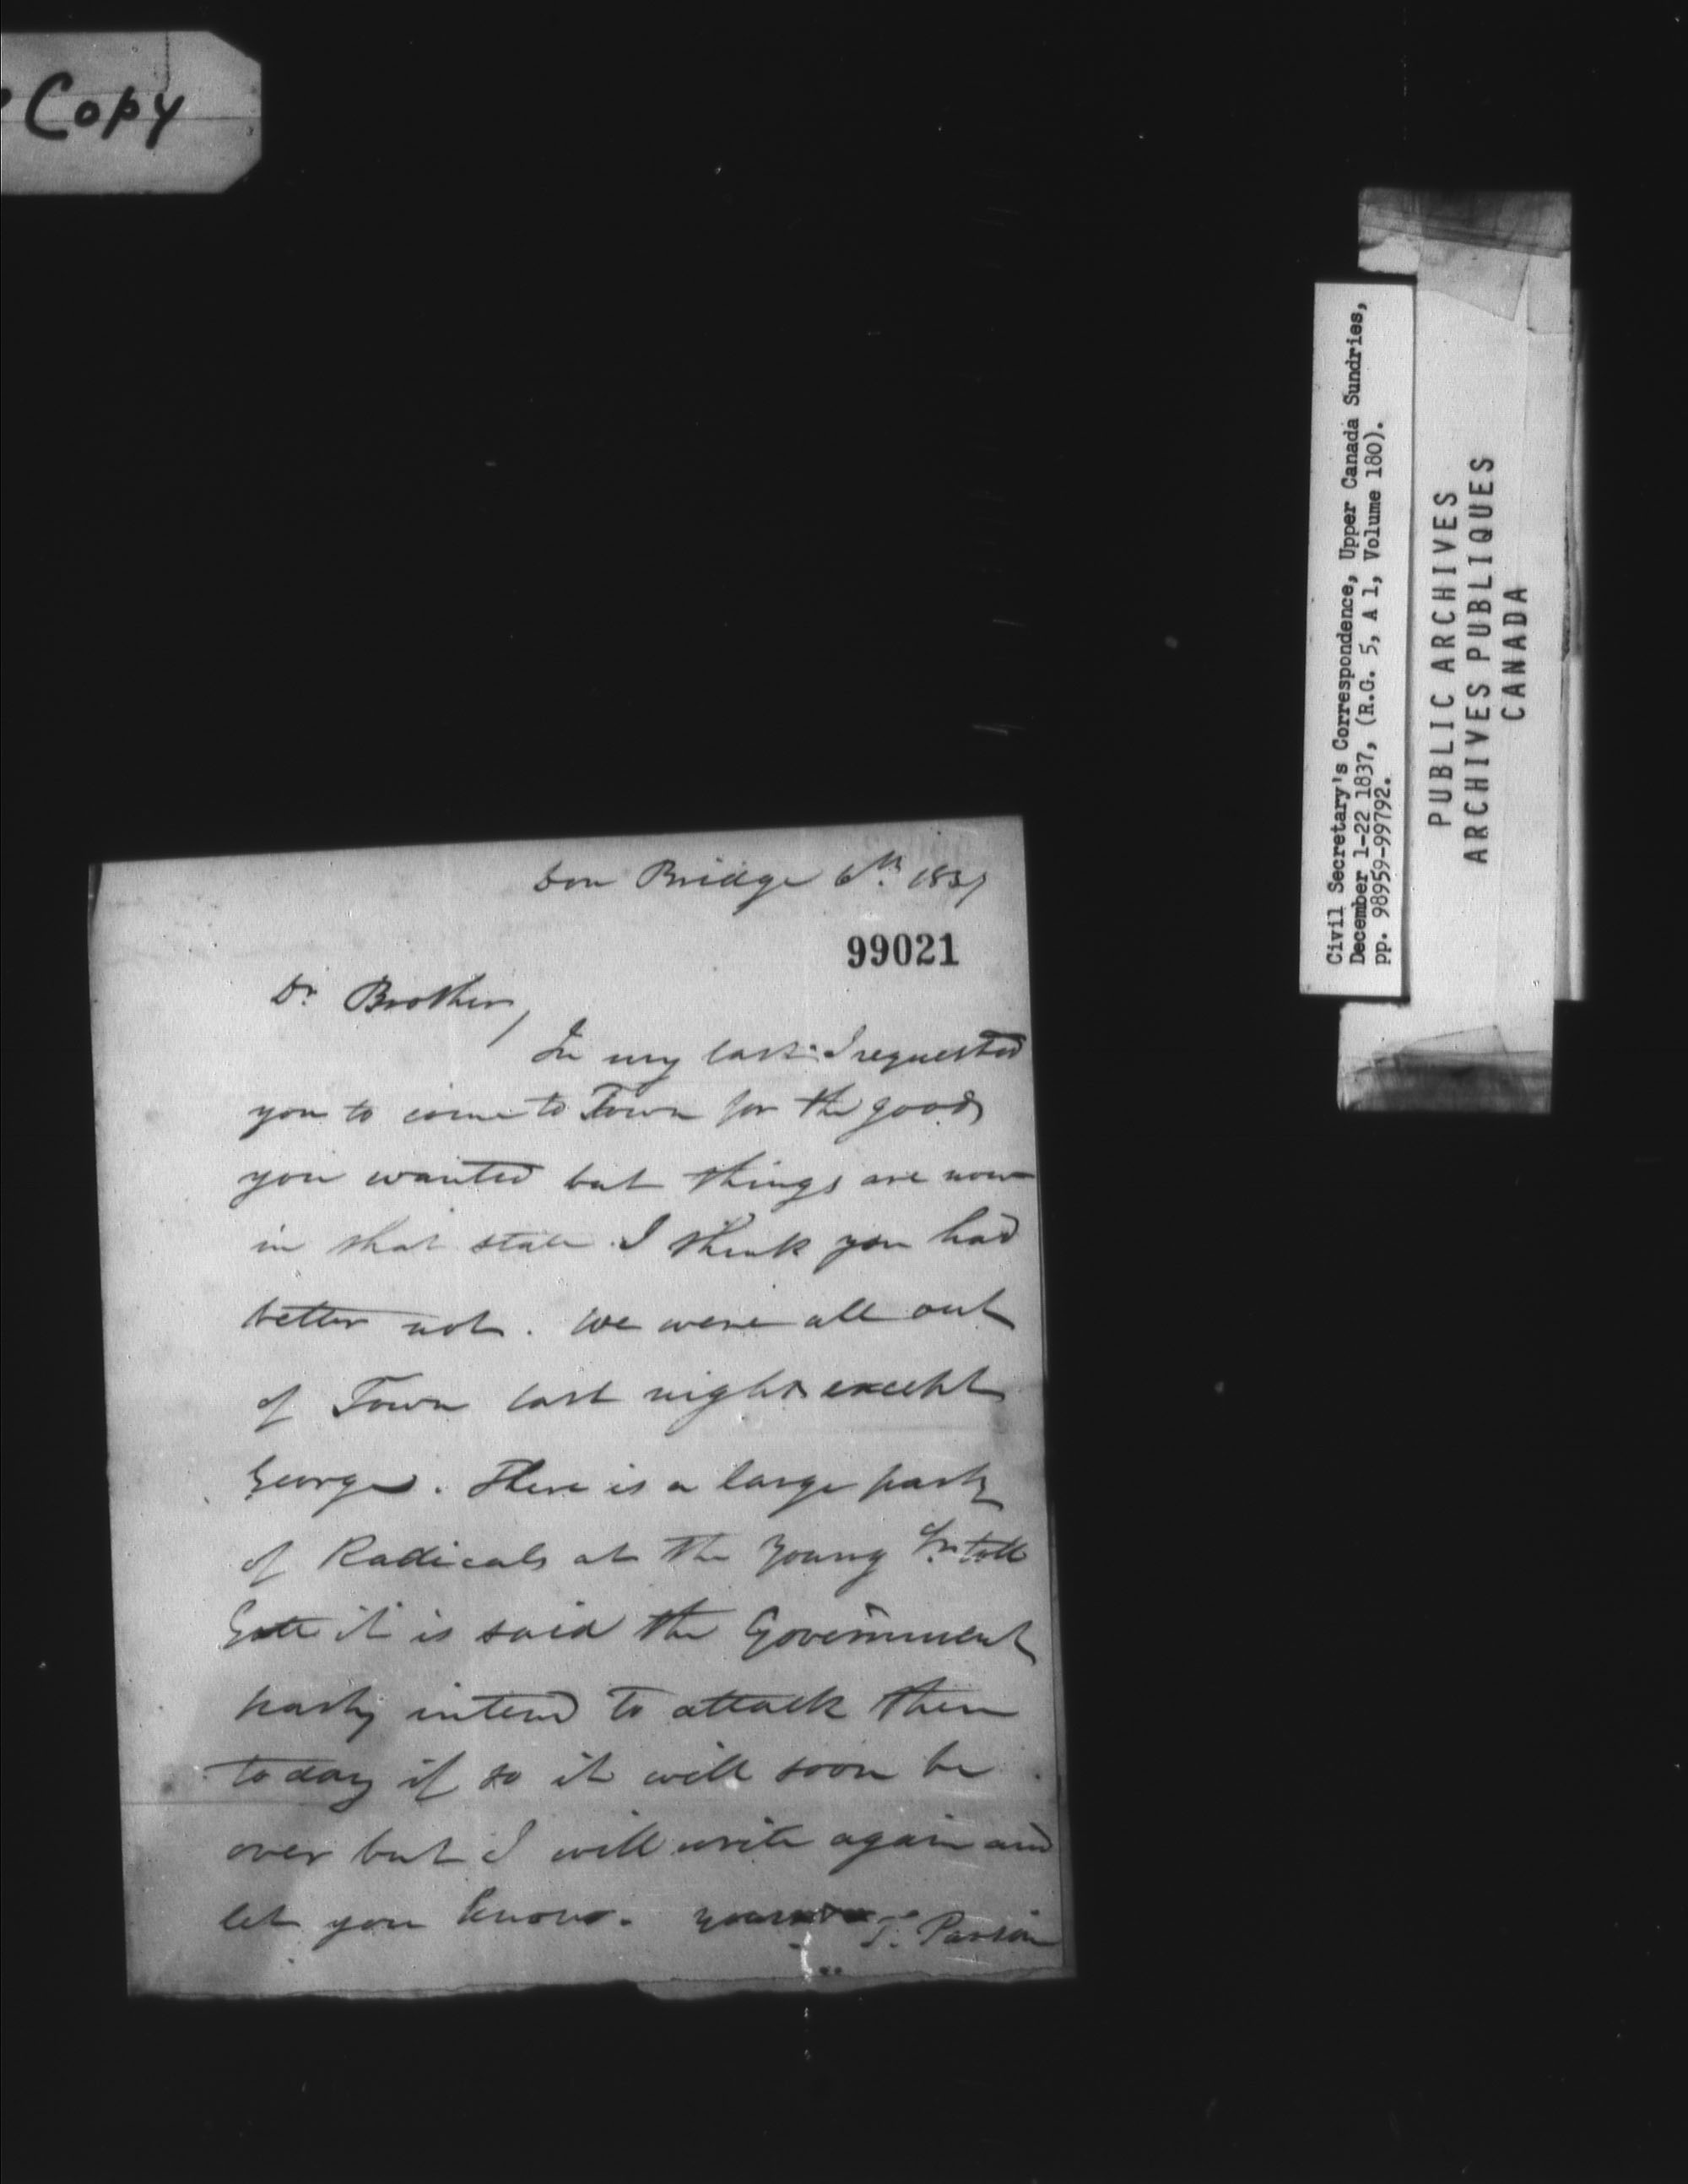 Copy
Civil Secretary's Correspondence, Upper Canada Sundries,
December 1-22 1837, (R.G. 5, A 1, Volume 180).
pp. 98959-99792.
PUBLIC ARCHIVES
ARCHIVES PUBLIQUES
CANADA
Don Bridge 6th 1837
99021
Dr Brother,
In my last I requested
you to come to Town for the goods
you wanted but things are now
in that state I think you had
better not. We were all out
of Town last night except
George. There is a large party
of Radicals at the Young St. toll
Gate it is said the Government
party intend to attack them
today if so it will soon be
over but I will write again and
let you know. Yours T. Parson